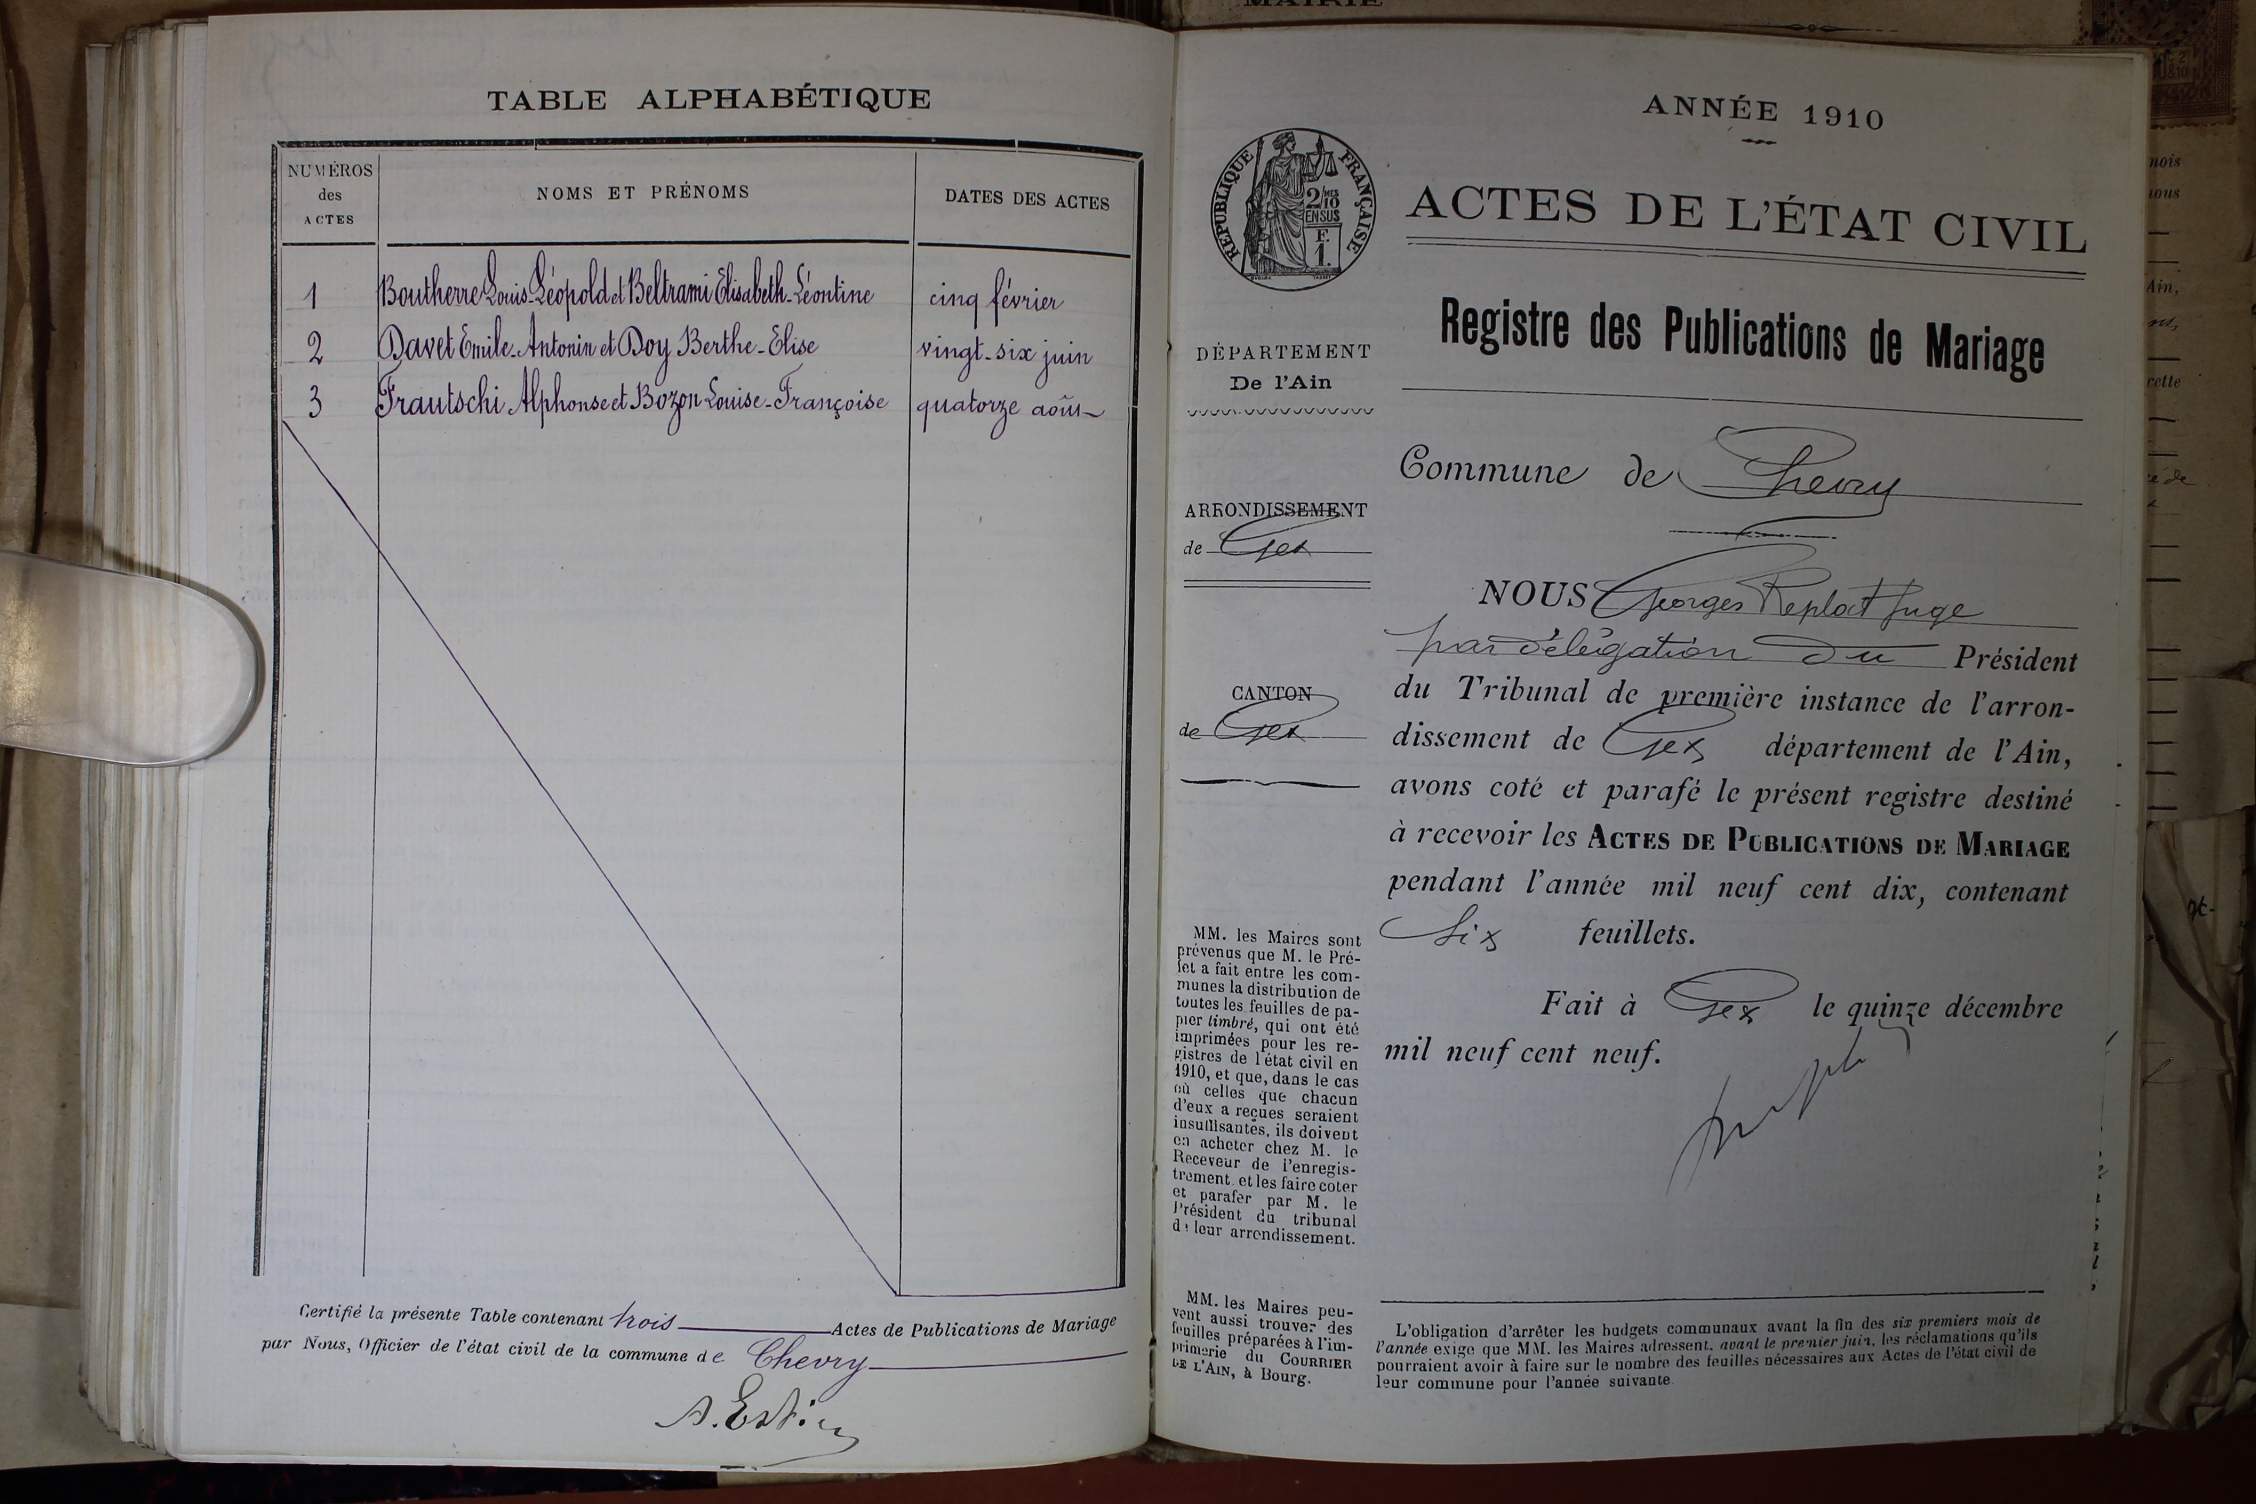 TABLE ALPHABÉTIQUE
NUMÉROS
des
ACTES
NOMS ET PRÉNOMS
DATES DES ACTES
1 Boutherre Louis-Léopold et Beltrami Elisabeth-Léontine cinq février
2 Davet Emile-Antonin et Doy Berthe-Elise vingt-six juin
3 Frautschi Alphonse et Bozon Louise-Françoise quatorze août
Certifié la présente Table contenant trois Actes de Publications de Mariage
par Nous, Officier de l'état civil de la commune de Chevry
MAIRIE
ANNÉE 1910
RÉPUBLIQUE FRANÇAISE
2/10
EN SUS
F.
1.
ACTES DE L'ÉTAT CIVIL
Registre des Publications de Mariage
DÉPARTEMENT
De l'Ain
Commune de Chevry
ARRONDISSEMENT
de Gex
CANTON
de Gex
NOUS Georges Juge
par délégation du Président
du Tribunal de première instance de l'arron-
dissement de Gex département de l'Ain,
avons coté et parafé le présent registre destiné
à recevoir les ACTES DE PUBLICATIONS DE MARIAGE
pendant l'année mil neuf cent dix, contenant
Six feuillets.
Fait à Gex le quinze décembre
mil neuf cent neuf.
MM. les Maires sont
prévenus que M. le Pré-
fet a fait entre les com-
munes la distribution de
toutes les feuilles de pa-
pier timbré, qui ont été
imprimées pour les re-
gistres de l'état civil en
1910, et que, dans le cas
où celles que chacun
d'eux a reçues seraient
insuffisantes, ils doivent
en acheter chez M. le
Receveur de l'enregis-
trement et les faire coter
et parafer par M. le
Président du tribunal
de leur arrondissement.
MM. les Maires peu-
vent aussi trouver des
feuilles préparées à l'im-
primerie du COURRIER
DE L'AIN, à Bourg.
L'obligation d'arrêter les budgets communaux avant la fin des six premiers mois de
l'année exige que MM. les Maires adressent, avant le premier juin, les réclamations qu'ils
pourraient avoir à faire sur le nombre des feuilles nécessaires aux Actes de l'état civil de
leur commune pour l'année suivante.